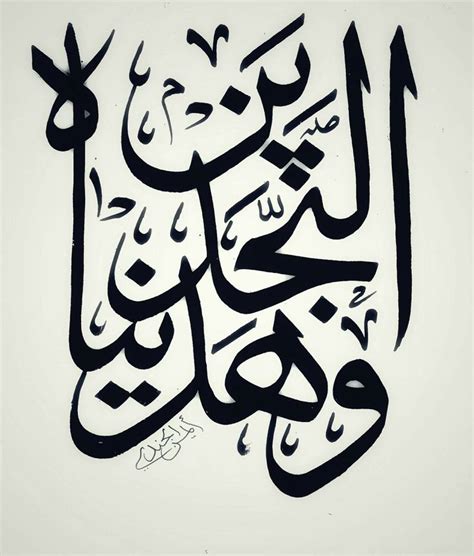 وهديناه
النجدين